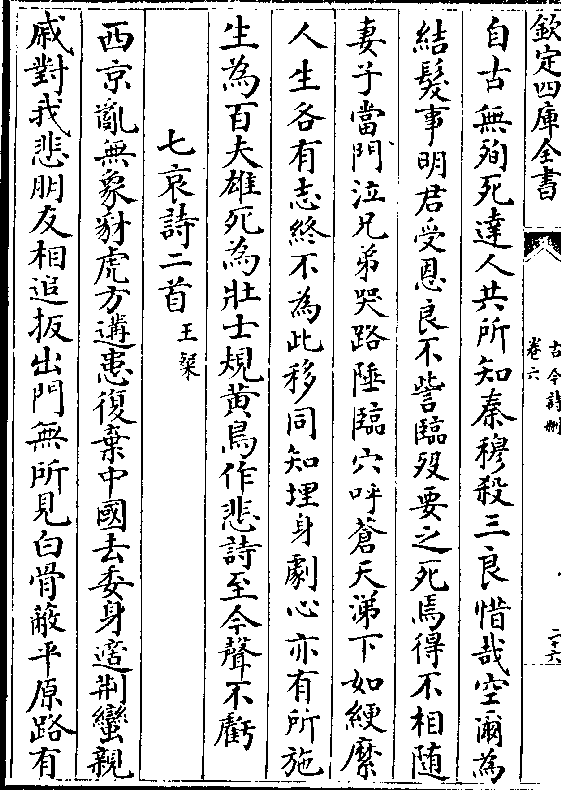 欽定四庫全書
古今詩刪
卷六
二十六
自古無殉死達人共所知秦穆殺三良惜哉空爾為
結髮事明君受恩良不訾臨歿要之死焉得不相随
妻子當門泣兄弟哭路陲臨穴呼蒼天涕下如綆縻
人生各有志終不為此移同知埋身劇心亦有所施
生為百夫雄死為壯士規黄鳥作悲詩至今聲不虧
七哀詩二首 王粲
西京亂無象豺虎方遘患復棄中國去委身適荆蠻親
戚對我悲朋友相追扳出門無所見白骨蔽平原路有